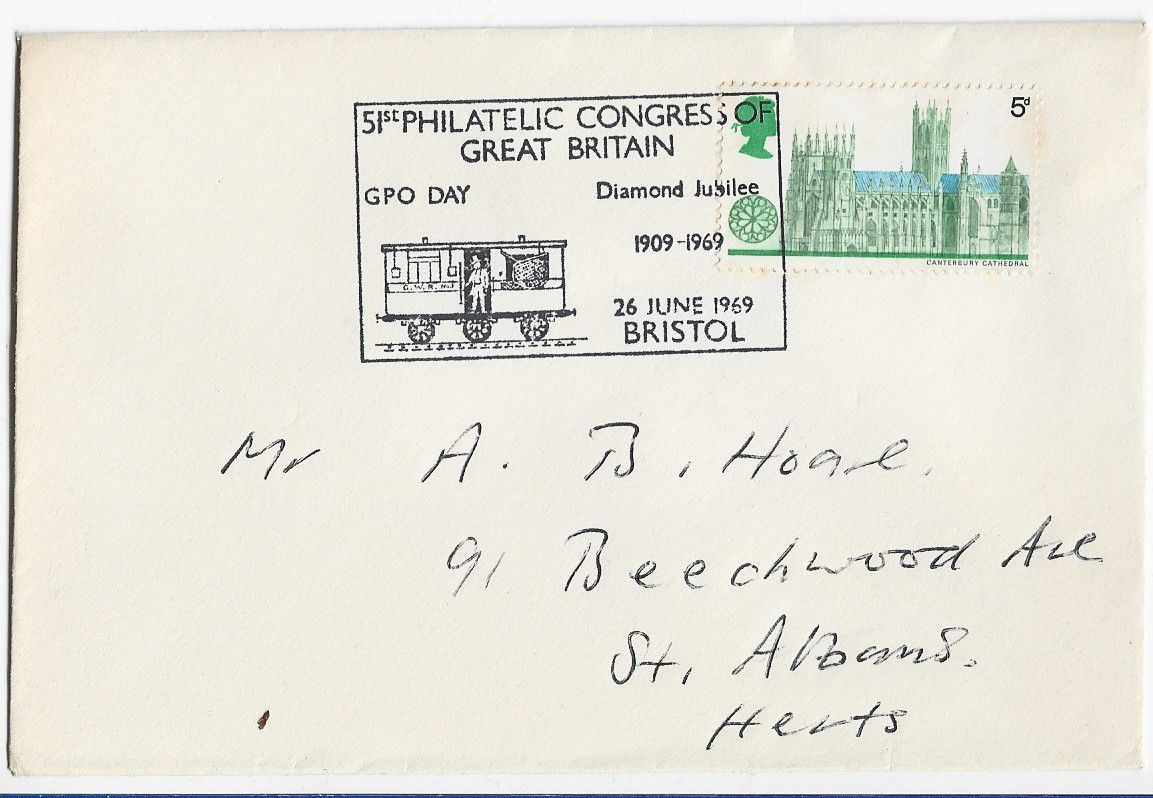 51st PHILATELIC CONGRESS OF
GREAT BRITAIN
GPO DAY
Diamond Jubilee
1909-1969
G.W.R.
26 JUNE 1969
BRISTOL
5d
CANTERBURY CATHEDRAL
Mr A. B. Hoare.
91 Beechwood Ave
St. Albans.
Herts